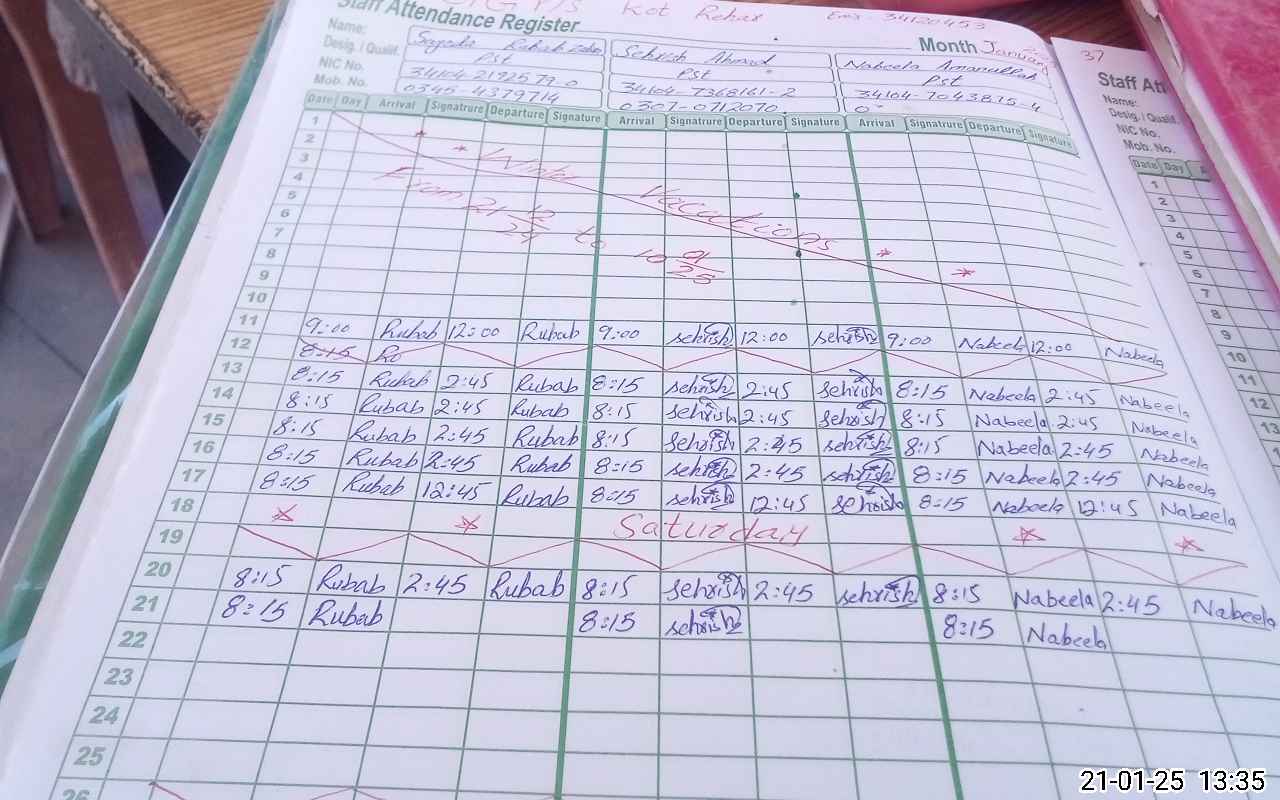 Kot Rehar Emis - 34120453
Staff Attendance Register Month January
Name: Sehrish Ahmad Nabeela Amanullah
Desig. / Qualif. Pst Pst Pst
NIC No. 34104-2192579-0 34104-7368161-2 34104-7043815-4
Mob. No. 0345-4379714 0307-0712070
Date Day Arrival Signatrure Departure Signature Arrival Signatrure Departure Signature Arrival Signatrure Departure Signature
1
2 * Winter Vacations * *
3
4 From 21 12/24 to 10 01/25
5
6
7
8
9
10
11 9:00 Rubab 12:00 Rubab 9:00 sehrish 12:00 sehrish 9:00 Nabeela 12:00 Nabeela
12 8:15
13 8:15 Rubab 2:45 Rubab 8:15 sehrish 2:45 sehrish 8:15 Nabeela 2:45 Nabeela
14 8:15 Rubab 2:45 Rubab 8:15 sehrish 2:45 sehrish 8:15 Nabeela 2:45 Nabeela
15 8:15 Rubab 2:45 Rubab 8:15 sehrish 2:45 sehrish 8:15 Nabeela 2:45 Nabeela
16 8:15 Rubab 2:45 Rubab 8:15 sehrish 2:45 sehrish 8:15 Nabeela 2:45 Nabeela
17 8:15 Rubab 12:45 Rubab 8:15 sehrish 12:45 sehrish 8:15 Nabeela 12:45 Nabeela
18 * * Saturday * *
19
20 8:15 Rubab 2:45 Rubab 8:15 sehrish 2:45 sehrish 8:15 Nabeela 2:45 Nabeela
21 8:15 Rubab 8:15 sehrish 8:15 Nabeela
22
23
24
25
26
37
Staff Att
Name:
Desig. / Qualif.
NIC No.
Mob. No.
Date Day
1
2
3
4
5
6
7
8
9
10
11
12
13
21-01-25 13:35